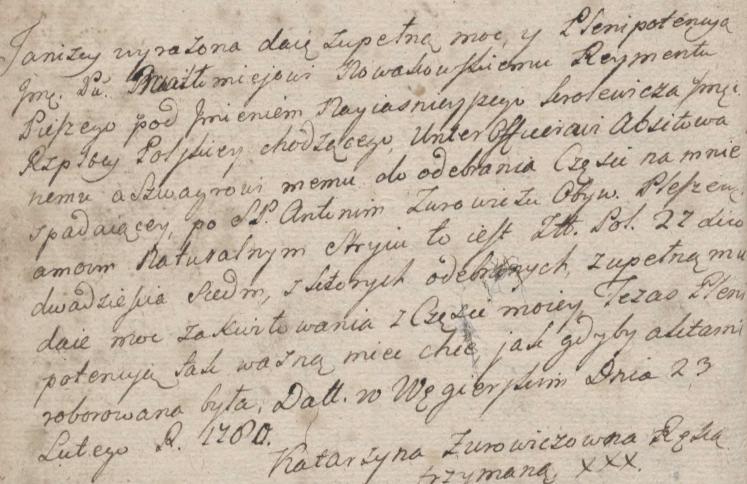 Ja niżey wyrażona daię zupełną moc, y Plenipotencyą
Jmę. Pu. Bartłmiejowi Nowakowskiemu Reymentu
Pieszego pod Jmieniem Nayiasnieyszego Krolewicza Jmci.
Rzpltey Polskiey chodzącego, UnterOfficerowi Absitowa
nemu a Szwagrowi memu do odebrania Części na mnie
spadaiącey, po SP. Antonim Zurowiczu Obyw. Pleszew
Naturalnym Stryiu to iest Ztt. Pol. 27 dico
dwadziescia Siedm, z ktorych odebranych, zupełną mu
daie moc zakwitowania z Części moiey, Teżaś Pleni
potencyą tak ważną mieć chcę jak gdyby aktami
roborowana była, Datt. w Węgierskim Dnia 23
Lutego R. 1780.
Katarzyna Zurowiczowna Ręką
trzymaną XXX.